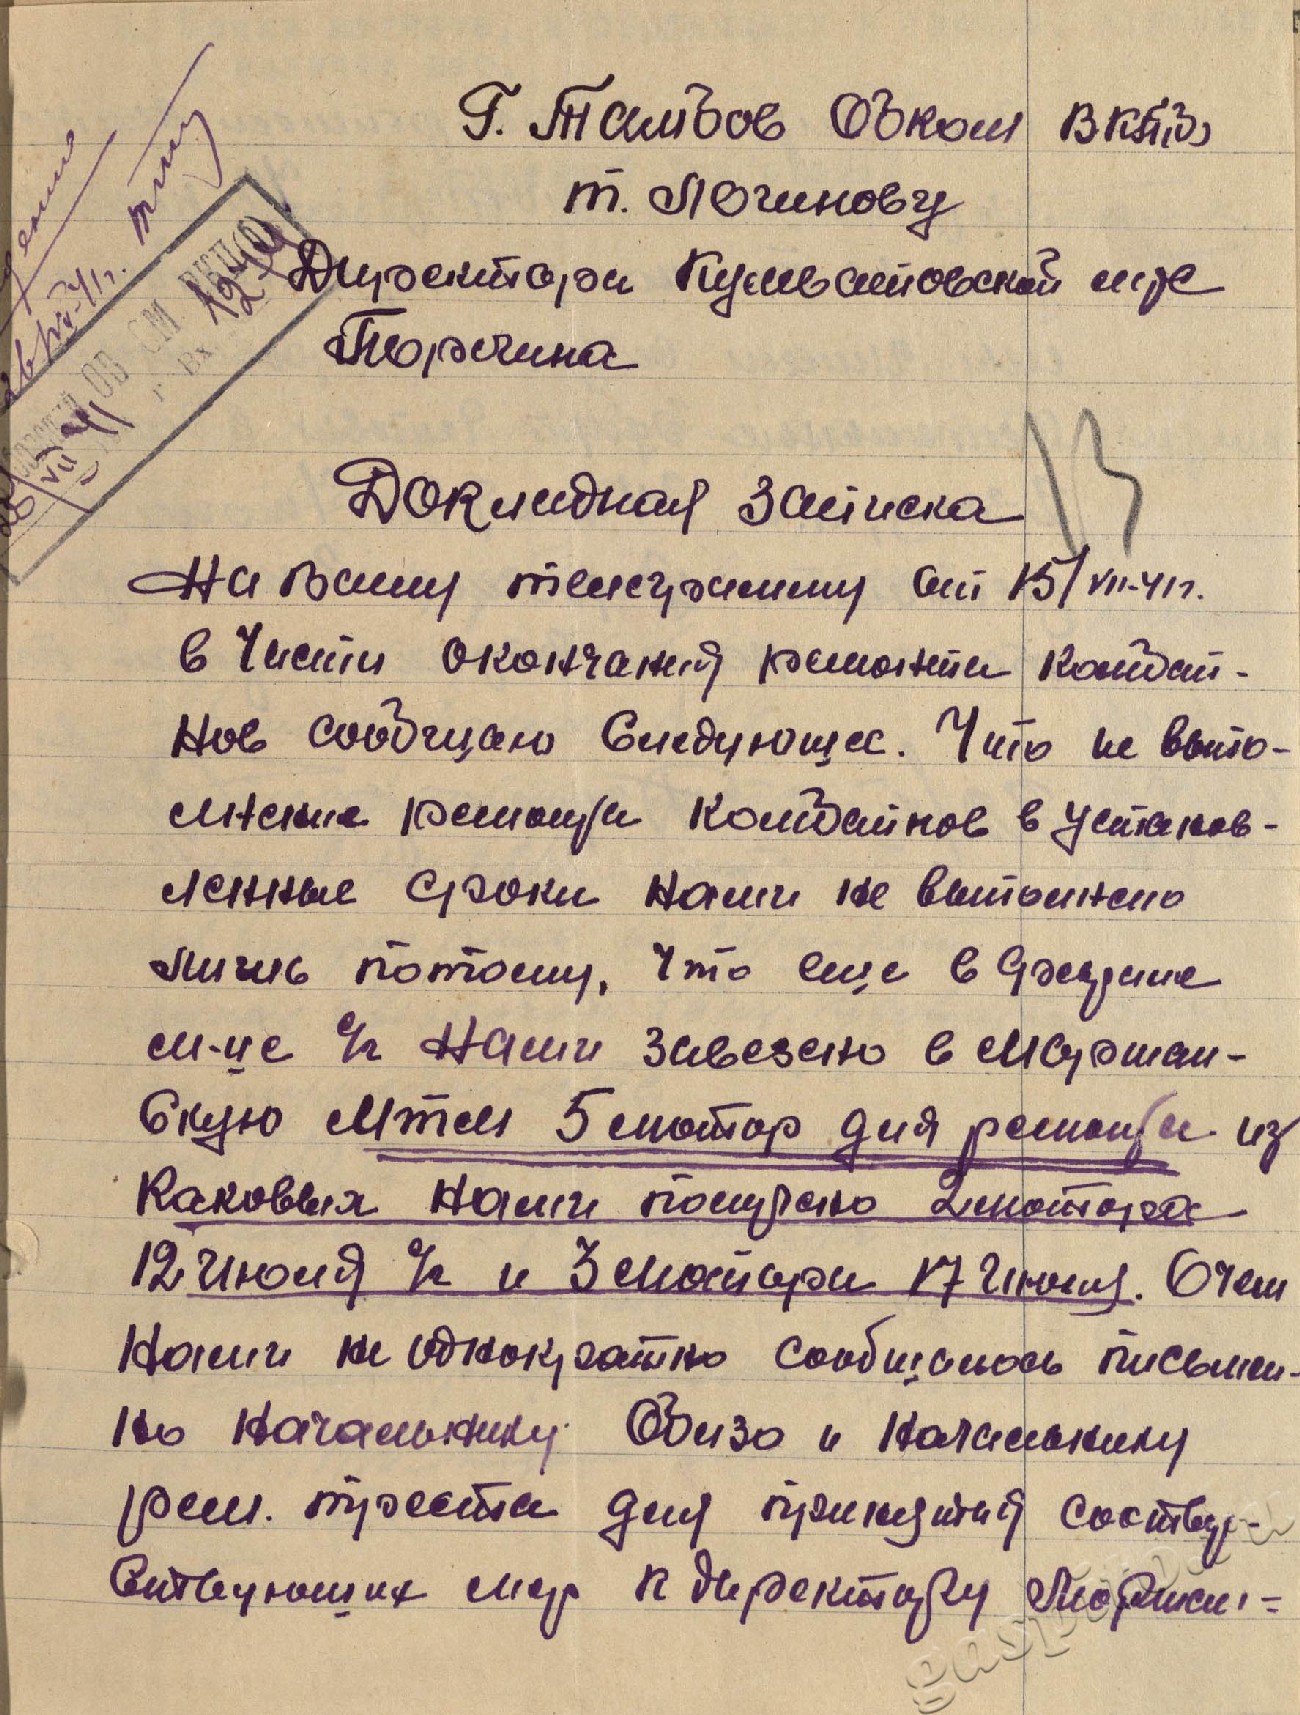 Г. Тамбов Обком ВКП(б)
т. Логинову
Директора мтс
Торгина
Докладная записка
На Вашу телеграмму от 15/VII-41г.
в части окончания ремонта комбай-
нов сообщаю следующее. Что не выпо-
лнение ремонта комбайнов в установ-
ленные сроки нами не выполнено
лишь потому, что еще в
м-це с/г нами завезено в Моршан-
скую мтм 5 мотор для ремонта из
каковых нами получено 2 мотора
12 июля с/г и 3 мотора 17 июля. О чем
нами не однократно сообщалось письмен-
но начальнику Облзо и начальнику
рем. треста для принятия соответ-
ствующих мер к директору Моршан=
gaspito.ru